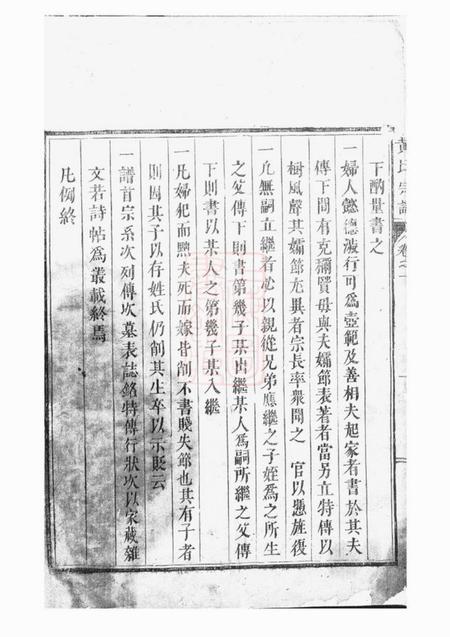 黃氏宗譜 卷之一
下酌量書之
一婦人懿德淑行可為壺範及善相夫起家者書於其夫
傳下間有克彌賢毋與夫孀節表著者當另立特傳以
樹風聲其孀節尤異者宗長率衆聞之 官以慿旌復
一凡無嗣立繼者必以親從兄弟應繼之子姪為之所生
之父傳下則書第幾子某出繼某人為嗣所繼之父傳
下則書以某人之第幾子某入繼
一凡婦犯而黜夫死而嫁皆削不書賤失節也其有子者
則因其子以存姓氏仍削其生卒以示貶云
一譜首宗系次列傳次墓表誌銘特傳行狀次以家藏雜
文若詩帖為叢載終焉
凡例終